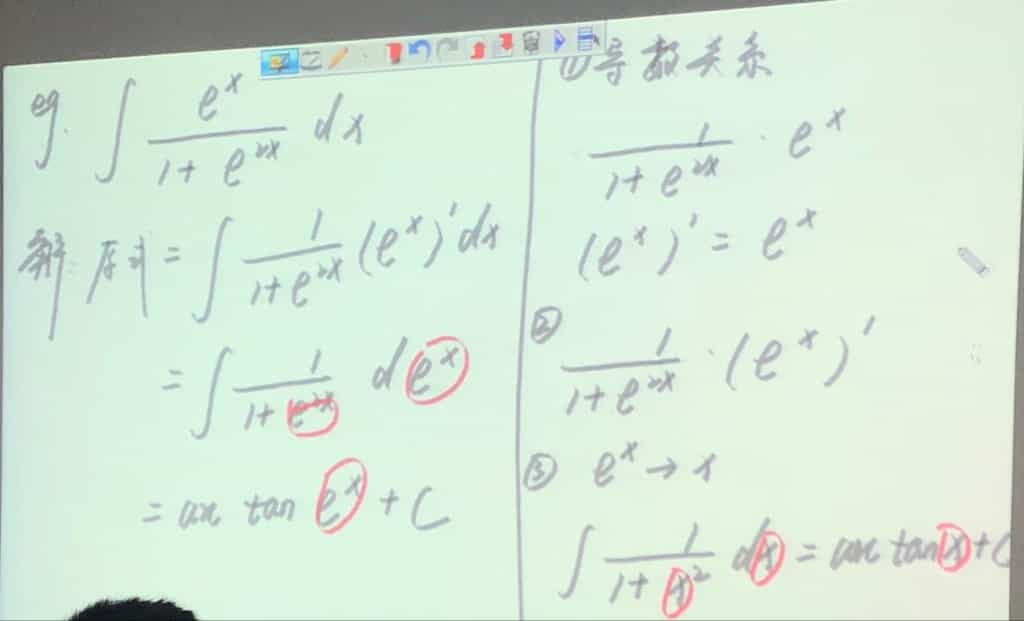 eg. ∫ e^x / (1 + e^{2x}) dx
解: 原式 = ∫ 1 / (1 + e^{2x}) (e^x)' dx
= ∫ 1 / (1 + e^{2x}) d e^x
= arc tan e^x + C
① 导数关系
1 / (1 + e^{2x}) · e^x
(e^x)' = e^x
②
1 / (1 + e^{2x}) · (e^x)'
③ e^x → x
∫ 1 / (1 + x²) dx = arc tan x + C